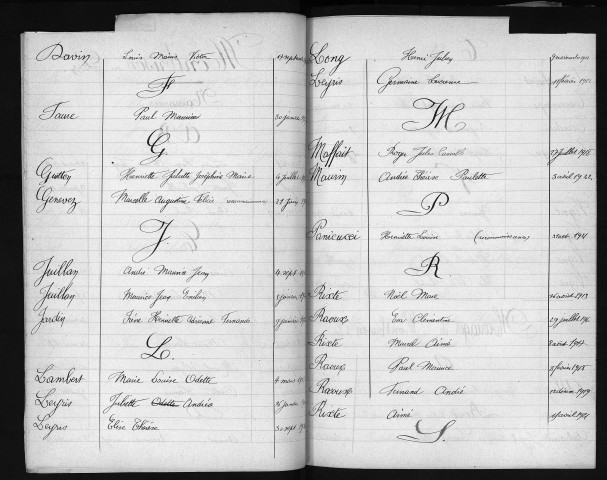 Davin Louis Marius Victor
F
Faure Paul Maurice 30 janvier
G
Guitton Henriette Juliette Joséphine Marie 4 juillet
Genevez Marcelle Augustine Elise 21 juin
J
Juillan André Maurice Jean 4 sept
Juillan Maurice Jean Emilien janvier
Jardin Irène Henriette Fernande janvier
L.
Lambert Marie Louise Odette 4 mars
Leyris Juliette Odette Andréa
Leyris Elise Thérèse 30 sept
Long Henri Julien
Leyris Germaine Lucienne février
M
Maffait Roger Jules Camille 27 juillet 1915
Maurin Andrée Thérèse Paulette 3 avril 1922
P
Panicucci Henriette Louise (reconnaissance)
R
Rixte Noël Marc 26 août 1913
Raoux Eva Clémentine 29 juillet
Rixte Marcel Aimé août 1914
Raoux Paul Maurice février 1915
Raoux Fernand André 1919
Rixte Aimé avril
S.